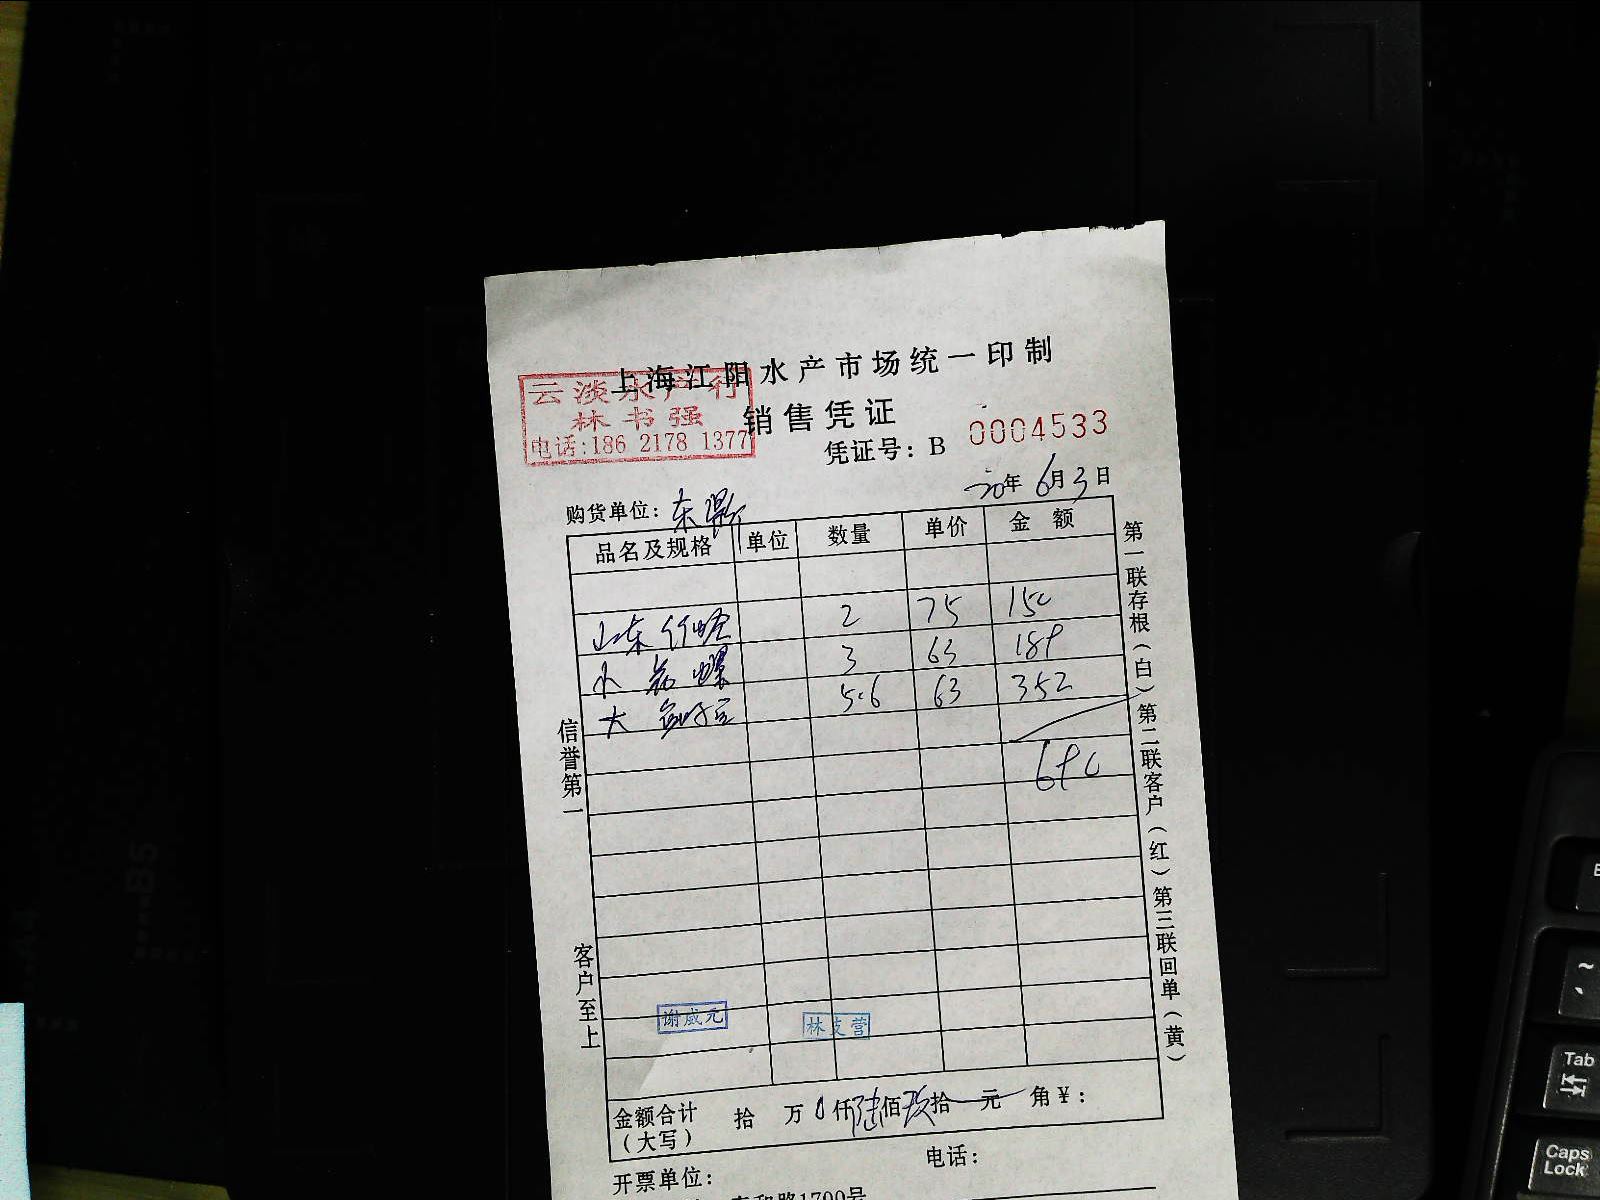 上海江阳水产市场统一印制
云淡水产行
林书强
电话:186 2178 1377
销售凭证
凭证号：B 0004533
年6月3日
购货单位：东
品名及规格 单位 数量 单价 金额
山东竹蛏 2 75 150
水 螺 3 63 189
大 5.6 63 352
690
信誉第一
客户至上
第一联存根（白）第二联客户（红）第三联回单（黄）
谢成元
林支营
金额合计 拾 万0仟陆佰玖拾 元 角¥：
（大写）
开票单位： 电话：
泰和路1700号
B5
Tab
Caps Lock